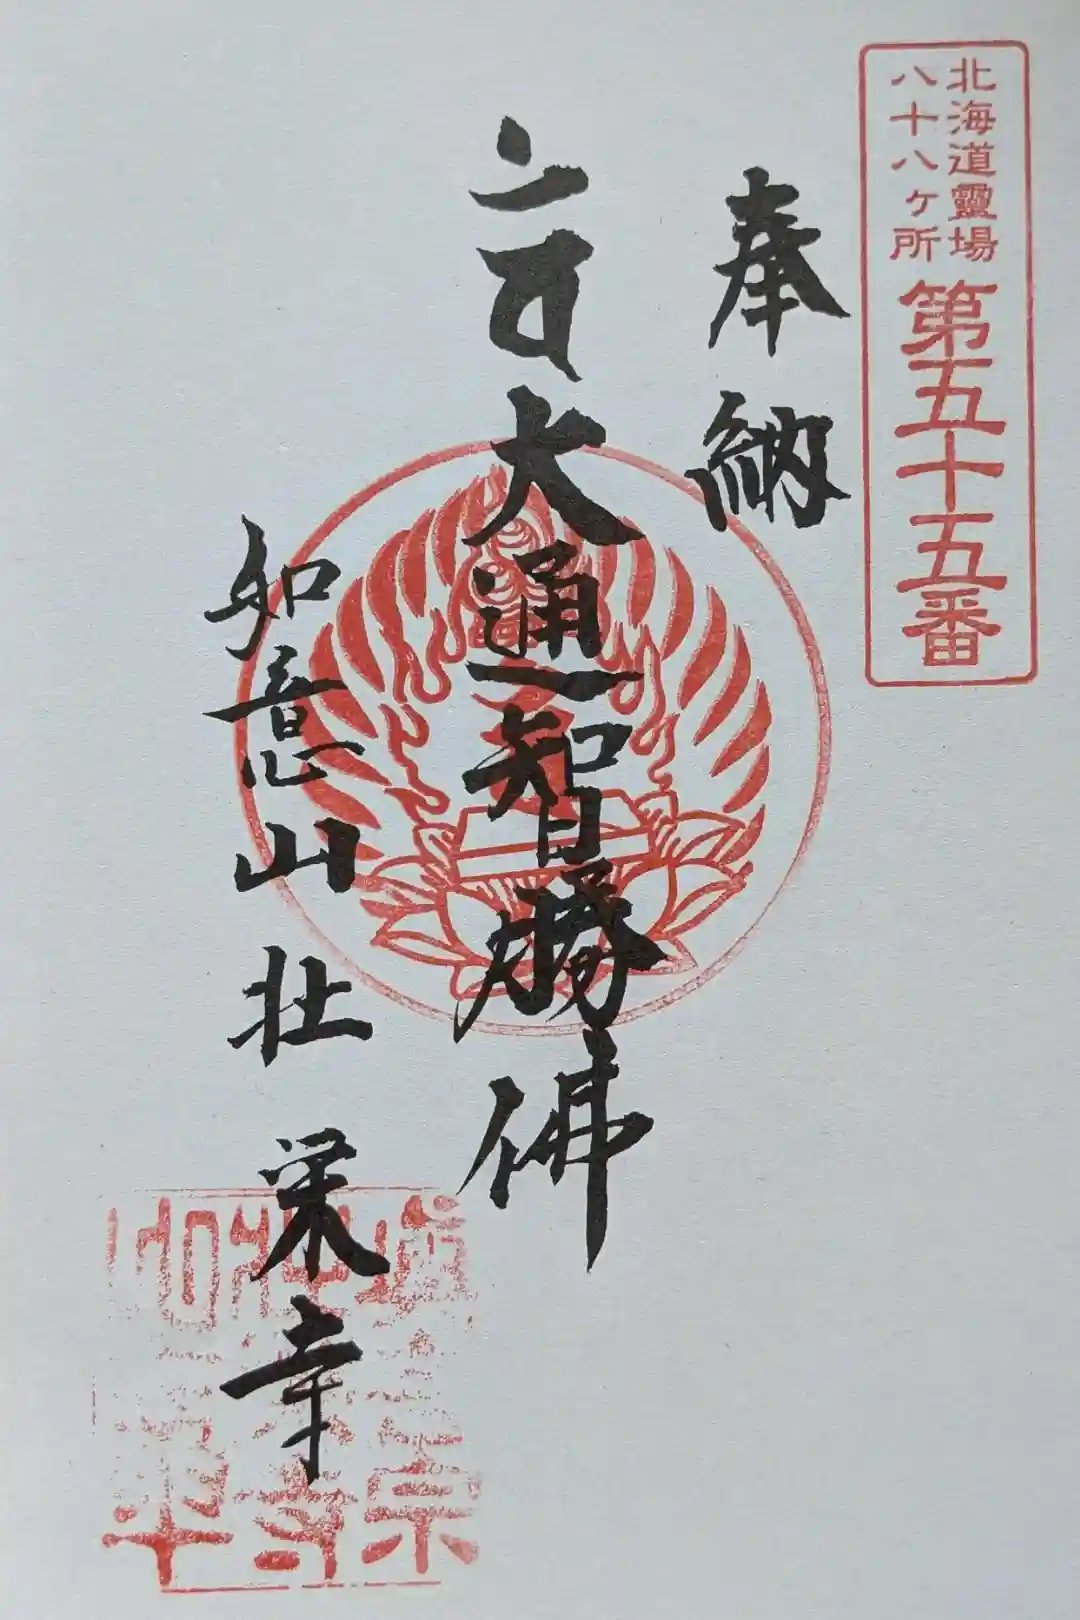 北海道靈場
八十八ヶ所
第五十五番
奉納
大通智勝佛
如意山 壮栄寺